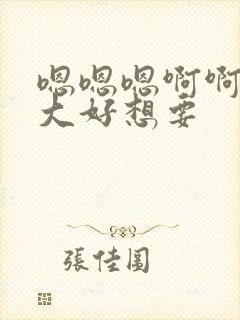 嗯嗯嗯啊啊
大好想要
張佳圓